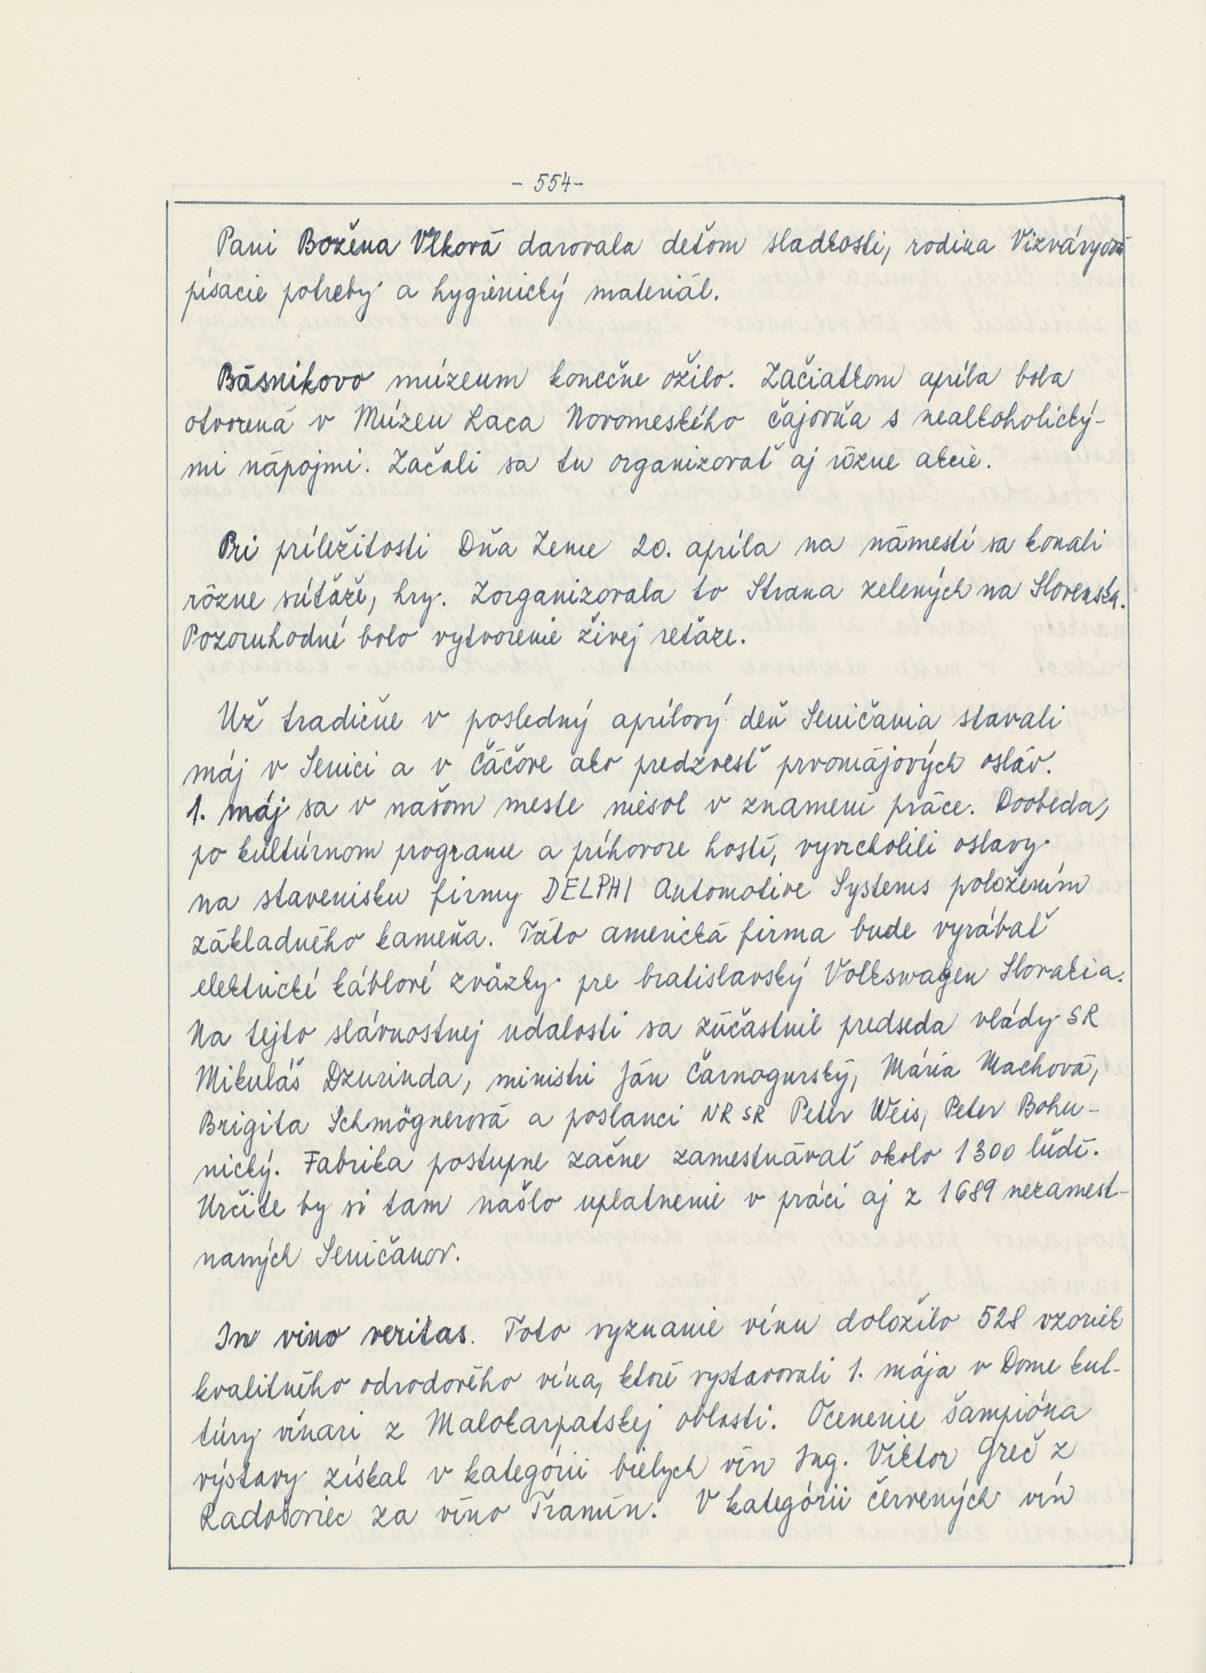 - 554 -
Pani Božena Vlková darovala deťom sladkosti, rodina Vizváryová
písacie potreby a hygienický materiál.
Básnikovo múzeum konečne ožilo. Začiatkom apríla bola
otvorená v Múzeu Laca Novomeského čajovňa s nealkoholický-
mi nápojmi. Začali sa tu organizovať aj rôzne akcie.
Pri príležitosti Dňa Zeme 20. apríla na námestí sa konali
rôzne súťaže, hry. Zorganizovala to Strana zelených na Slovensku.
Pozoruhodné bolo vytvorenie živej reťaze.
Už tradične v posledný aprílový deň Seničania stavali
máj v Senici a v Čáčove ako predzvesť prvomájových osláv.
1. máj sa v našom meste niesol v znamení práce. Doobeda,
po kultúrnom programe a príhovore hostí, vyvrcholili oslavy
na stavenisku firmy DELPHI Automotive Systems položením
základného kameňa. Táto americká firma bude vyrábať
elektrické káblové zväzky pre bratislavský Volkswagen Slovakia.
Na tejto slávnostnej udalosti sa zúčastnil predseda vlády SR
Mikuláš Dzurinda, ministri Ján Čarnogurský, Mária Machová,
Brigita Schmögnerová a poslanci NR SR Peter Weis, Peter Bohu-
nický. Fabrika postupne začne zamestnávať okolo 1300 ľudí.
Určite by si tam našlo uplatnenie v práci aj z 1689 nezamest-
naných Seničanov.
In vino veritas. Toto vyznanie vínu doložilo 528 vzoriek
kvalitného odrodového vína, ktoré vystavovali 1. mája v Dome kul-
túry vinari z Malokarpatskej oblasti. Ocenenie šampióna
výstavy získal v kategórii bielych vín Ing. Viktor Greč z
Radošoviec za víno Tramín. V kategórii červených vín